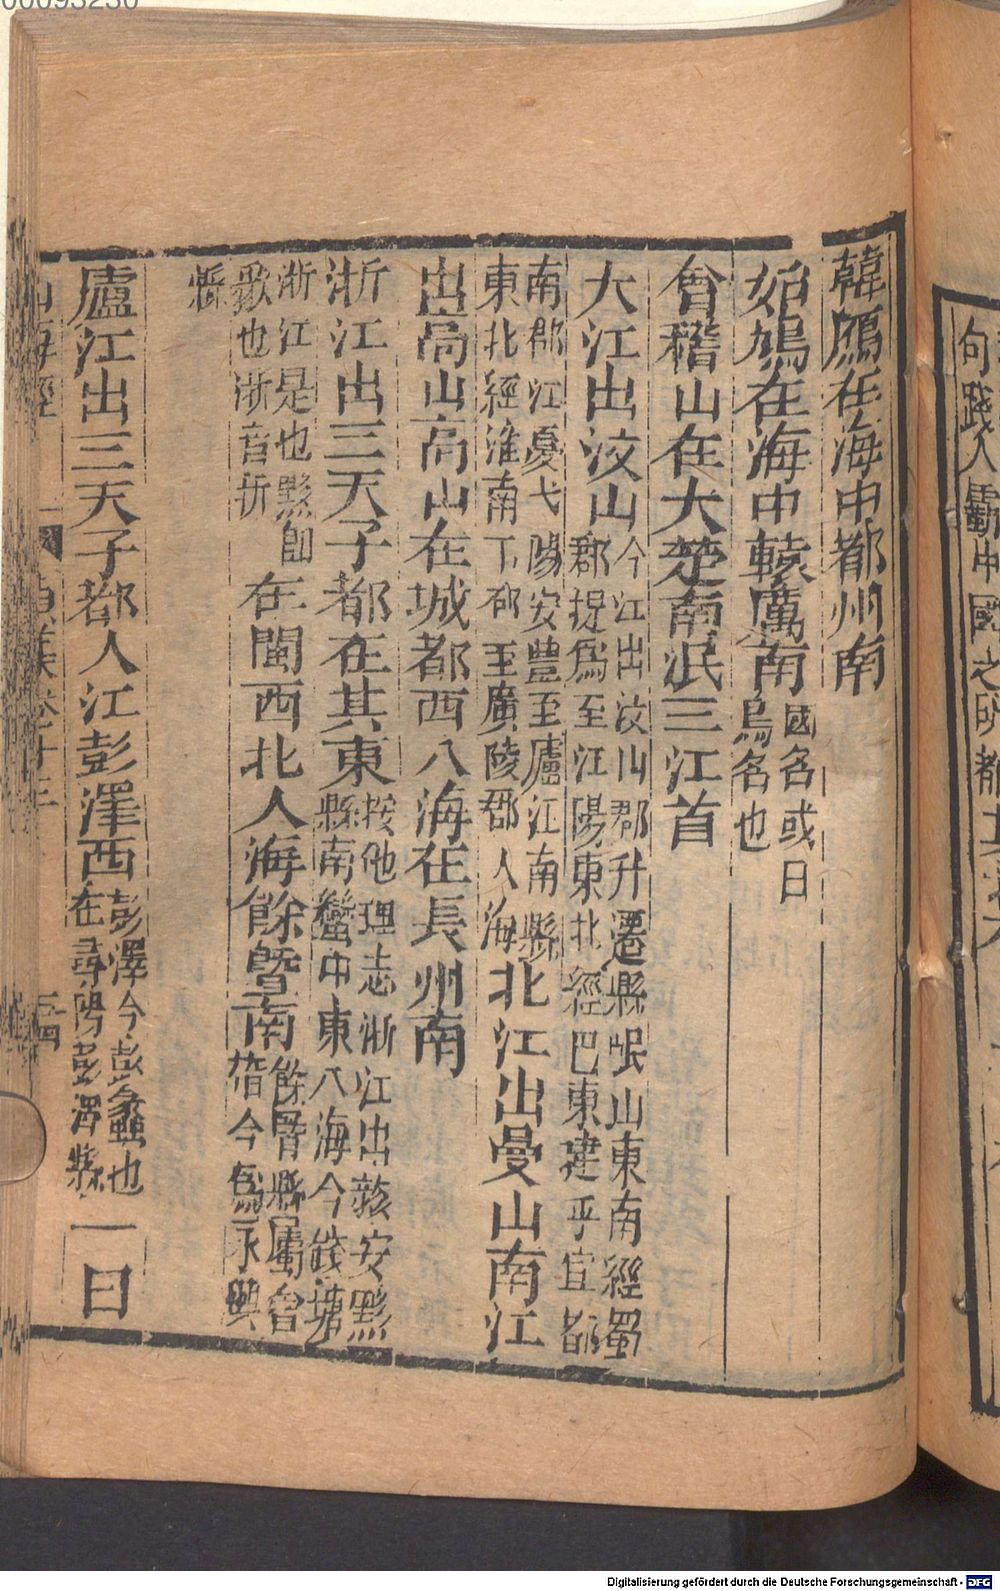 00093230
句踐入霸中國之所都
韓鴈在海中都州南
始鳩在海中轅厲南國名或曰
鳥名也
會稽山在大楚南泯三江首
大江出汶山今江出汶山郡升遷縣岷山東南經蜀
郡捉為至江陽東北經巴東建乎宜都
南郡江憂弋陽安豊至廬江南縣
東北經淮南下邳至廣陵郡人海北江出曼山南江
出高山高山在城都西八海在長州南
浙江出三天子都在其東按他理志浙江出䓣安黟
縣南蠻中東八海今錢塘
浙江是也黟即
歙也浙音折在閩西北人海餘曁南餘曁縣屬會
𥡆今為永興
縣
廬江出三天子都人江彭澤西彭澤今彭蠡也
在尋陽彭澤縣一曰
山海經
三四
Digitalisierung gefördert durch die Deutsche Forschungsgemeinschaft - DFG